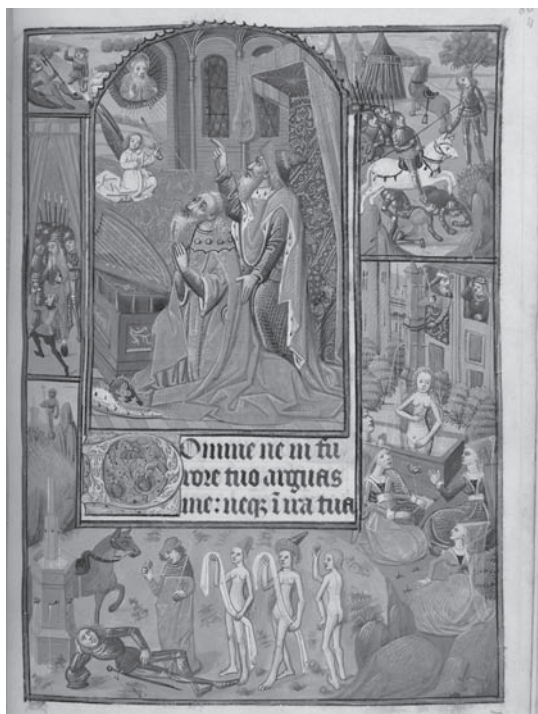 Domine ne in fu
rore tuo arguas
me: neqz ī ira tua